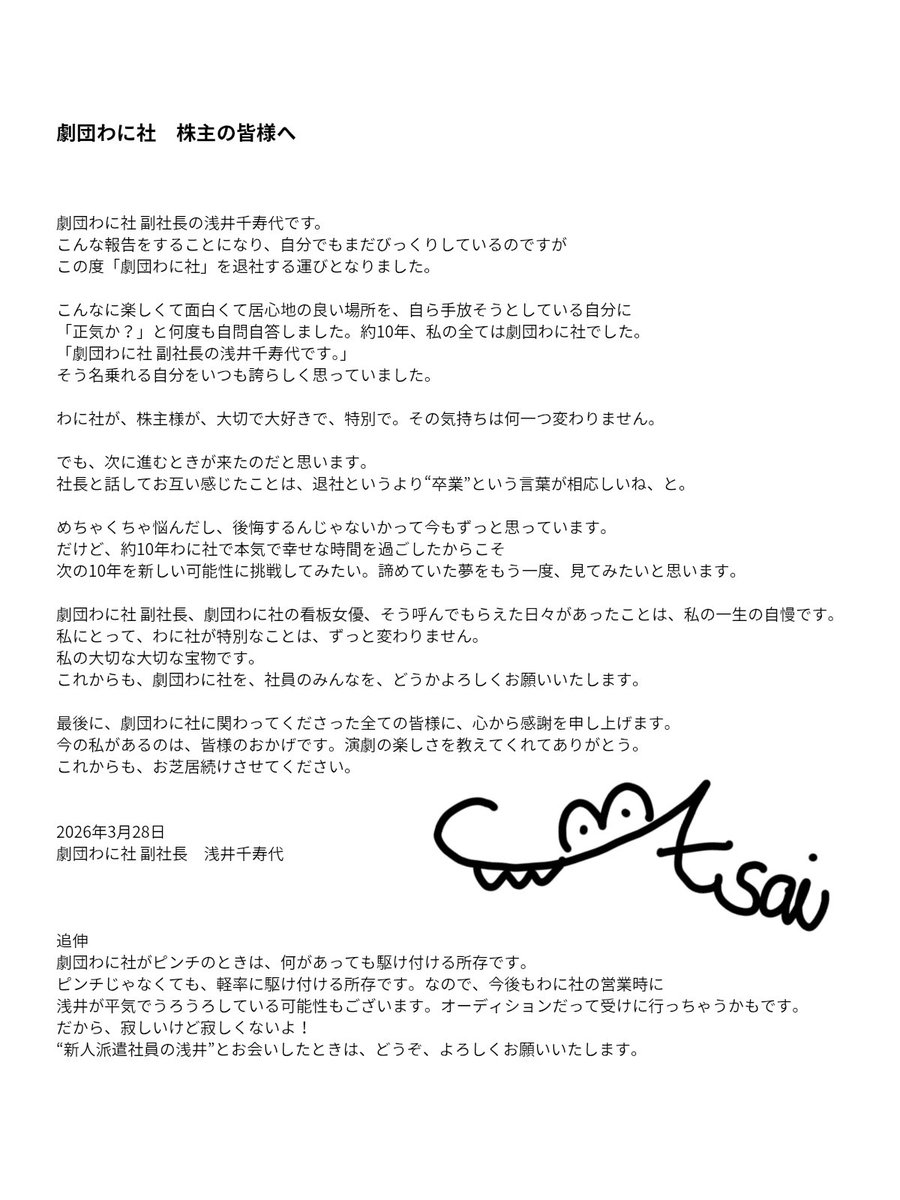 劇団わに社　株主の皆様へ
劇団わに社 副社長の浅井千寿代です。
こんな報告をすることになり、自分でもまだびっくりしているのですが
この度「劇団わに社」を退社する運びとなりました。
こんなに楽しくて面白くて居心地の良い場所を、自ら手放そうとしている自分に
「正気か？」と何度も自問自答しました。約10年、私の全ては劇団わに社でした。
「劇団わに社 副社長の浅井千寿代です。」
そう名乗れる自分をいつも誇らしく思っていました。
わに社が、株主様が、大切で大好きで、特別で。その気持ちは何一つ変わりません。
でも、次に進むときが来たのだと思います。
社長と話してお互い感じたことは、退社というより“卒業”という言葉が相応しいね、と。
めちゃくちゃ悩んだし、後悔するんじゃないかって今もずっと思っています。
だけど、約10年わに社で本気で幸せな時間を過ごしたからこそ
次の10年を新しい可能性に挑戦してみたい。諦めていた夢をもう一度、見てみたいと思います。
劇団わに社 副社長、劇団わに社の看板女優、そう呼んでもらえた日々があったことは、私の一生の自慢です。
私にとって、わに社が特別なことは、ずっと変わりません。
私の大切な大切な宝物です。
これからも、劇団わに社を、社員のみんなを、どうかよろしくお願いいたします。
最後に、劇団わに社に関わってくださった全ての皆様に、心から感謝を申し上げます。
今の私があるのは、皆様のおかげです。演劇の楽しさを教えてくれてありがとう。
これからも、お芝居続けさせてください。
2026年3月28日
劇団わに社 副社長　浅井千寿代
tsai
追伸
劇団わに社がピンチのときは、何があっても駆け付ける所存です。
ピンチじゃなくても、軽率に駆け付ける所存です。なので、今後もわに社の営業時に
浅井が平気でうろうろしている可能性もございます。オーディションだって受けに行っちゃうかもです。
だから、寂しいけど寂しくないよ！
“新人派遣社員の浅井”とお会いしたときは、どうぞ、よろしくお願いいたします。